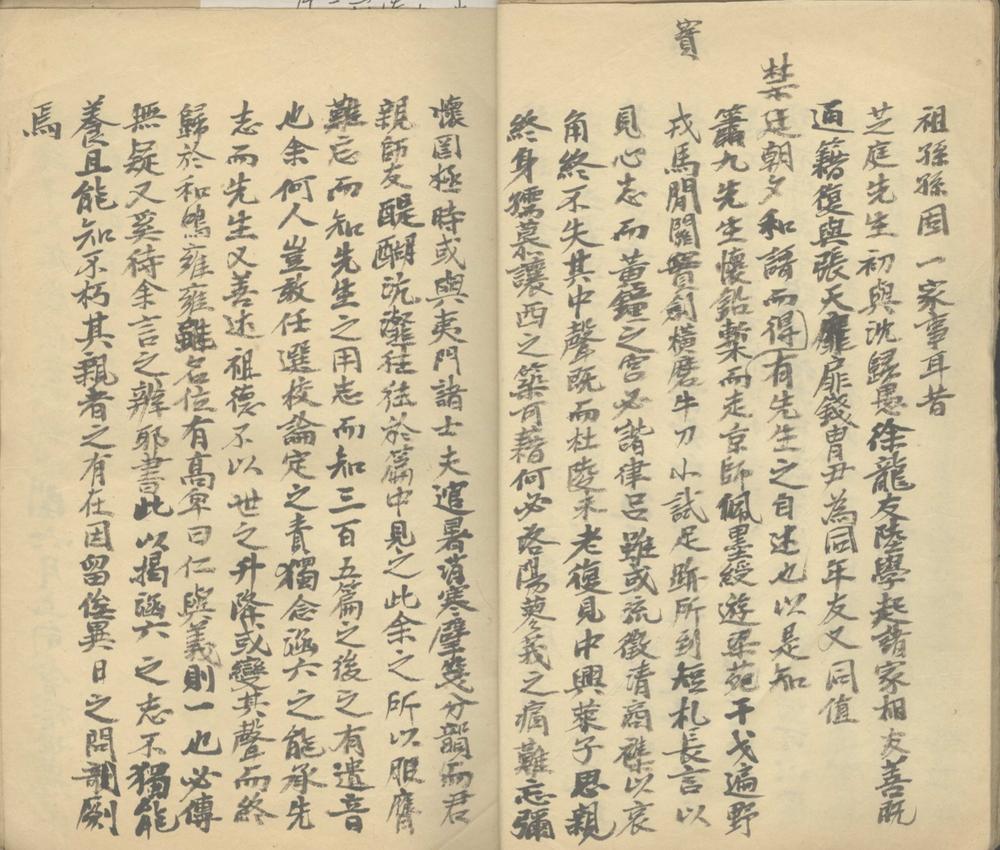 祖孫孫因一家事耳昔
芝庭先生初與沈歸愚徐龍友陸學起諸家相友善既
通籍復與張天扉扉錢曹尹為同年友又同值
禁廷朝夕和語而得有先生之自述也以是知
簫九先生懷鉛槧而走京師佩墨綬遊梁苑干戈遍野
寶
戎馬間關寶劍橫磨牛刀小試足跡所到短札長言以
見心志而黃鐘之宮必諧律呂雖或流徵清商襍以哀
角終不失其中聲既而杜陵未老復見中興萊子思親
終身孺慕讓西之築可藉何必洛陽蓼莪之痛難忘彌
懷罔極時或與夷門諸士夫逭暑消寒擘箋分韻而君
親師友醍醐沆瀣往往於篇中見之此余之所以服膺
難忘而知先生之用志而知三百五篇之後之有遺音
也余何人豈敢任選校論定之責獨念涵六之能承先
志而先生又善述祖德不以世之升降或變其聲而終
歸於和鳴雍雍雖名位有高卑曰仁與義則一也必傳
無疑又奚待余言之辨耶書此以揭涵六之志不獨能
養且能知不朽其親者之有在因留俟異日之問剞劂
焉